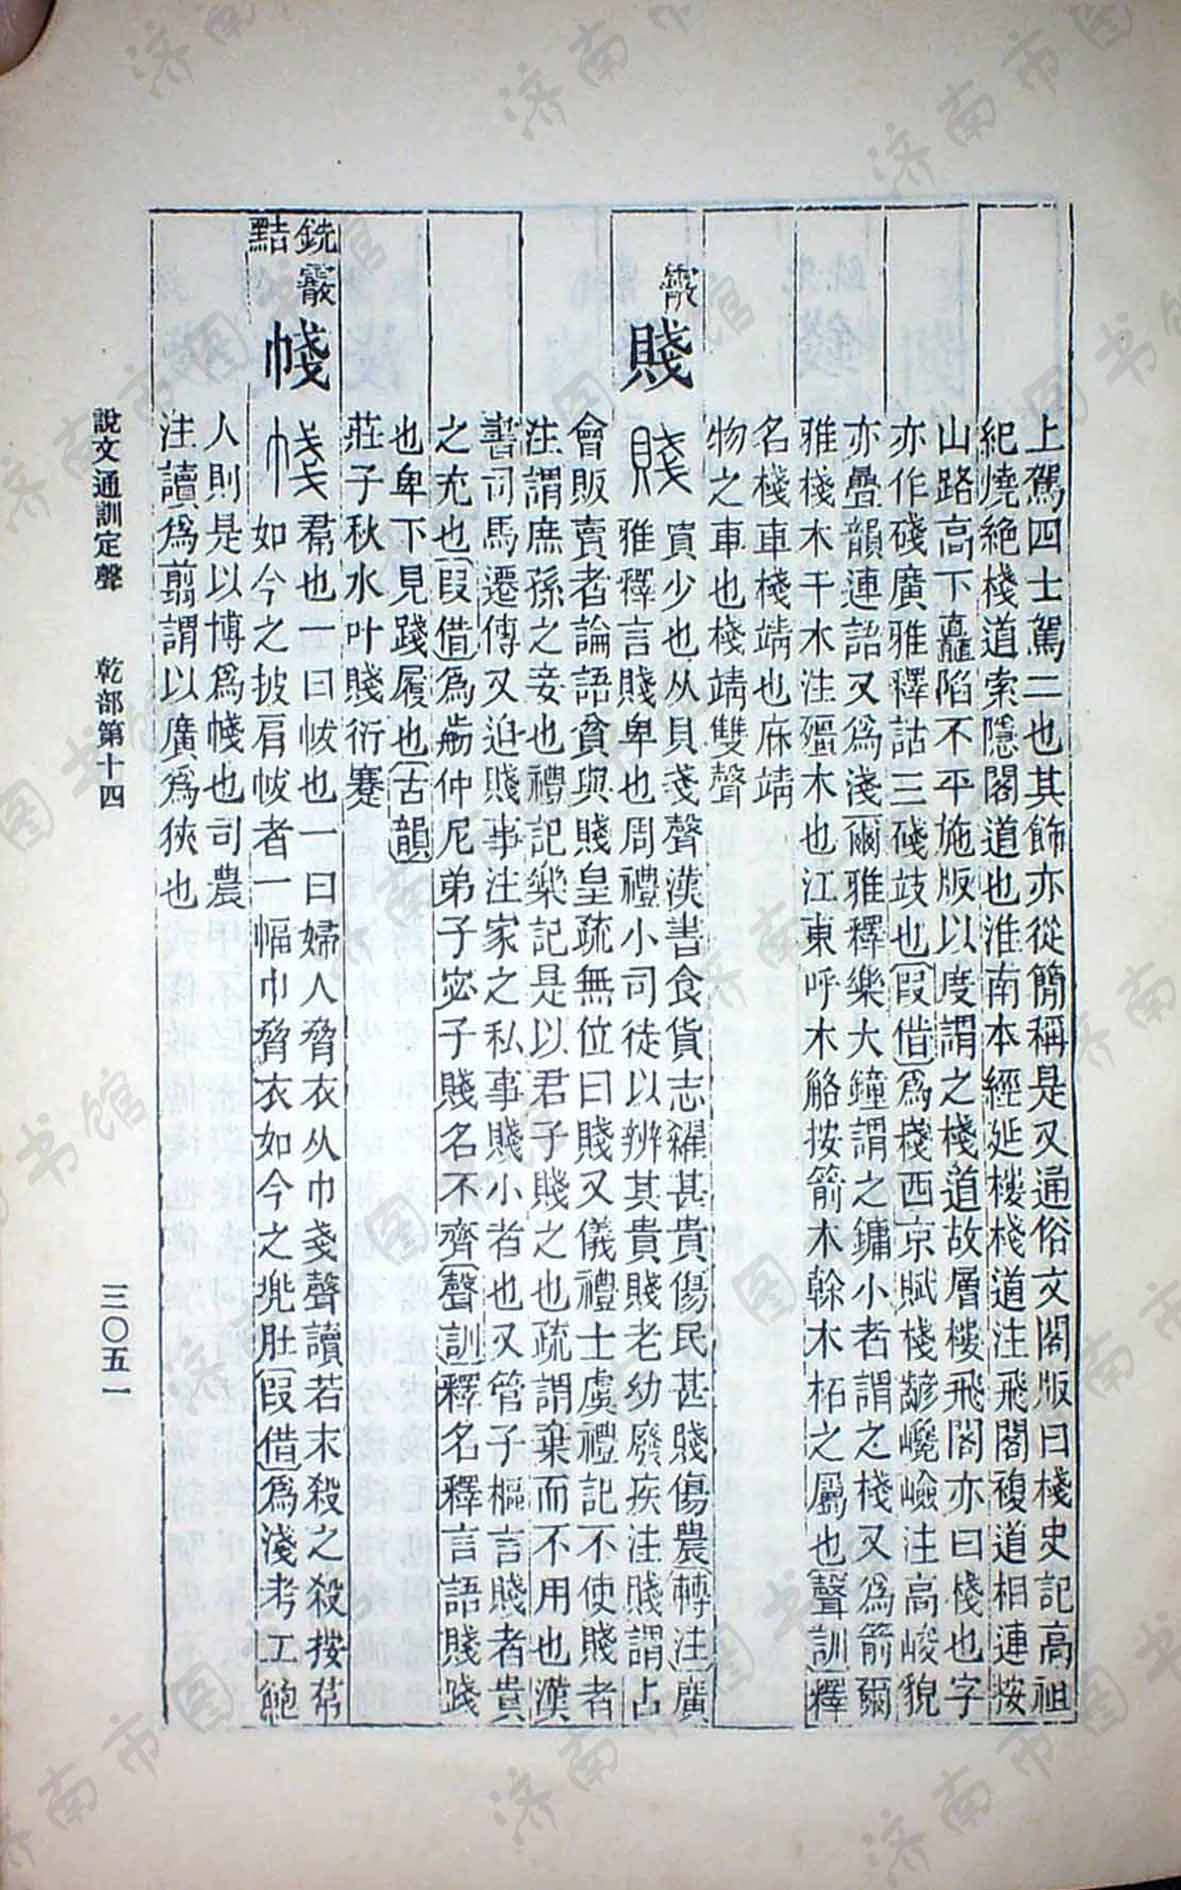 上駕四士駕二也其飾亦從簡稱是又通俗文閣版曰棧史記高祖
紀燒絶棧道索隱閣道也淮南本經延樓棧道注飛閣複道相連按
山路高下𪚮陷不平施版以度謂之棧道故層樓飛閣亦曰棧也字
亦作碊廣雅釋詁三碊攱也假借爲㟞西京賦棧齴巉嶮注高峻貌
亦疊韻連語又爲淺爾雅釋樂大鐘謂之鏞小者謂之棧又爲箭爾
雅棧木干木注殭木也江東呼木觡按箭木榦木柘之屬也聲訓釋
名棧車棧靖也麻靖
物之車也棧靖雙聲
霰
賤
賤
賣少也从貝戔聲漢書食貨志糴甚貴傷民甚賤傷農轉注廣
雅釋言賤卑也周禮小司徒以辨其貴賤老幼廢疾注賤謂占
會販賣者論語貧與賤皇疏無位曰賤又儀禮士虞禮記不使賤者
注謂庶孫之妾也禮記樂記是以君子賤之也疏謂棄而不用也漢
書司馬遷傳又迫賤事注家之私事賤小者也又管子樞言賤者貴
之充也假借爲𣃁仲尼弟子宓子賤名不齊聲訓釋名釋言語賤踐
也卑下見踐履也古韻
莊子秋水叶賤衍蹇
銑霰
黠
帴
帴
帬也一曰帗也一曰婦人脅衣从巾戔聲讀若末殺之殺按帬
如今之披肩帗者一幅巾脅衣如今之兜肚假借爲淺考工鮑
人則是以博爲帴也司農
注讀爲翦謂以廣爲狹也
說文通訓定聲　乾部第十四　三〇五一